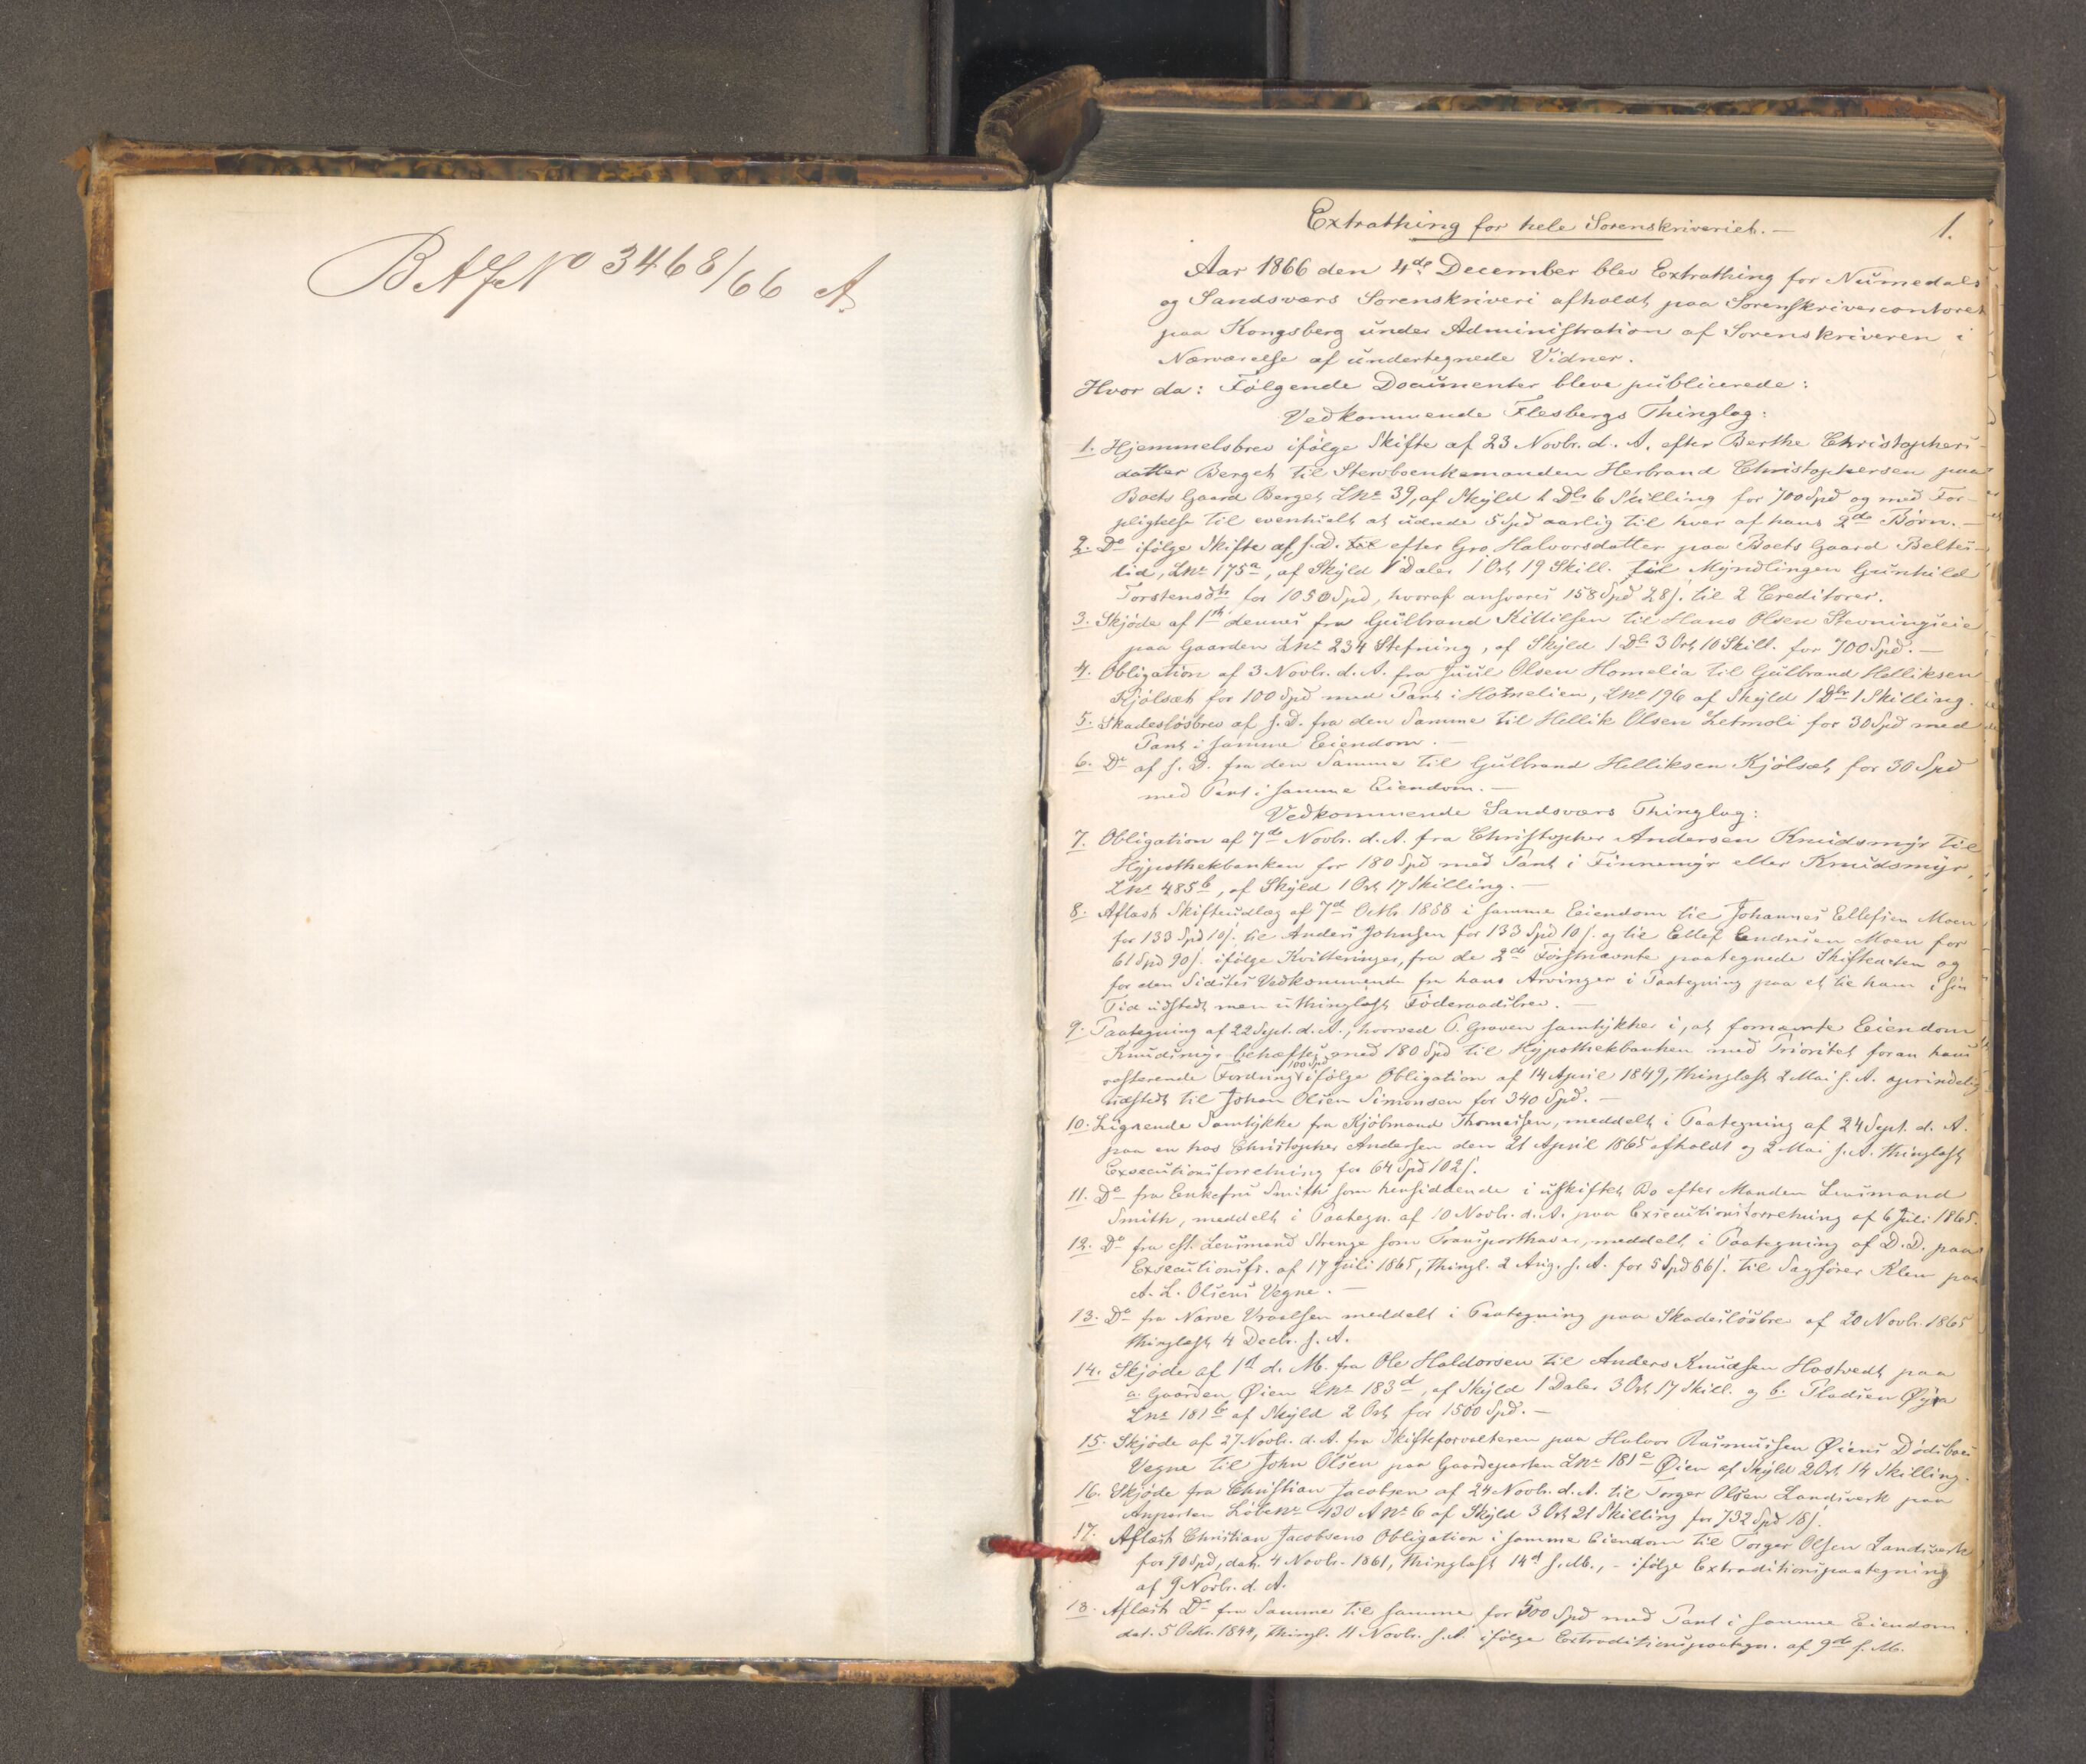 BAf No 3468/66 A.
Extrathing for hele Sorenskriveriet. —
1.
Aar 1866 den 4de December blev Extrathing for Numedals
og Sandsværs Sorenskriveri afholdt paa Sorenskrivercontoret
paa Kongsberg under Administration af Sorenskriveren i
Nærværelse af undertegnede Vidner.
Hvor da: Følgende Documenter bleve publicerede:
Vedkommende Flesbergs Thinglag:
1. Hjemmelsbrev ifølge Skifte af 23 Novbr. d. A. efter Berthe Christophers-
datter Berget til Stervboenkemanden Herbrand Christophersen paa
Boets Gaard Berget LNr 39, af Skyld 1 Dlr 6 Skilling for 700 Spd og med For-
pligtelse til eventuelt at udrede 5 Spd aarlig til hver af hans 2de Børn. —
2. Do ifølge Skifte af s. D. til efter Gro Halvorsdatter paa Boets Gaard Beltes-
lid, LNr 175a, af Skyld 1 Daler 1 Ort 19 Skill. til Myndlingen Gunhild
Torstensdtr for 1050 Spd, hvoraf ansvares 158 Spd 28 s. til 2 Creditorer.
3. Skjøde af 1ste dennes fra Gulbrand Kittilsen til Hans Olsen Stevningseie
paa Gaarden LNr 234 Stefning, af Skyld 1 Dlr 3 Ort 10 Skill. for 700 Spd. —
4. Obligation af 3 Novbr. d. A. fra Juul Olsen Homelia til Gulbrand Helliksen
Kjølsæt for 100 Spd med Pant i Homelien, LNr 196 af Skyld 1 Dlr 1 Skilling.
5. Skadesløsbrev af s. D. fra den Samme til Hellik Olsen Letmoli for 30 Spd med
Pant i samme Eiendom. —
6. Do af s. D. fra den Samme til Gulbrand Helliksen Kjølsæt for 30 Spd
med Pant i samme Eiendom. —
Vedkommende Sandsværs Thinglag:
7. Obligation af 7de Novbr. d. A. fra Christopher Andersen Knudsmyr til
Hypothekbanken for 180 Spd med Pant i Finnemyr eller Knudsmyr,
LNr 485b, af Skyld 1 Ort 17 Skilling. —
8. Aflæst Skifteudlæg af 7d Octbr 1858 i samme Eiendom til Johannes Ellefsen Moen
for 133 Spd 10 s. til Anders Johnsen for 133 Spd 10 s. og til Ellef Endresen Moen for
61 Spd 90 s. ifølge Kvitteringer, fra de 2de Førstnævnte paategnede Skifteacten og
for den Sidstes Vedkommende fra hans Arvinger i Paategning paa et til ham i sin
Tid udstedt men uthinglæst Føderaadsbrev. —
9. Paategning af 22 Sept. d. A., hvorved P. Graven samtykker i, at fornævnte Eiendom
Knudsmyr behæftes med 180 Spd til Hypothekbanken med Prioritet foran hans
resterende Fordring 100 Spd ifølge Obligation af 14 April 1849, thinglæst 2 Mai s. A. oprindelig
udstedt til Johan Olsen Simonsen for 340 Spd. —
10. Lignende Samtykke fra Kjøbmand Thomassen, meddelt i Paategning af 24 Sept. d. A.
paa en hos Christopher Andersen den 21 April 1865 afholdt og 2 Mai s. A. thinglæst
Executionsforretning for 64 Spd 102 s.
11. Do fra Enkefru Smith som hensiddende i uskiftet Bo efter Manden Lensmand
Smith, meddelt i Paategn. af 10 Novbr. d. A. paa Executionsforretning af 6 Juli 1865.
12. Do fra cst. Lensmand Strenge som Transporthaver, meddelt i Paategning af D. D. paa
Executionsfr. af 17 Juli 1865, thingl. 2 Aug. s. A. for 5 Spd 66 s. til Sagfører Klem paa
A. L. Olsens Vegne. —
13. Do fra Narve Vraalsen meddelt i Paategning paa Skadesløsbre af 20 Novbr. 1865
thinglæst 4 Decbr. s. A.
14. Skjøde af 1st d. M. fra Ole Haldorsen til Anders Knudsen Hostvedt paa
a. Gaarden Øien LNr 183d, af Skyld 1 Daler 3 Ort 17 Skill. og b. Pladsen Øya
LNr 181b af Skyld 2 Ort for 1500 Spd. —
15. Skjøde af 27 Novbr. d. A. fra Skifteforvalteren paa Halvor Rasmussen Øiens Dødsboes
Vegne til John Olsen paa Gaardeparten LNr 181e Øien af Skyld 2 Ort 14 Skilling.
16. Skjøde fra Christian Jacobsen af 24 Novbr. d. A. til Torger Olsen Landsverk paa
Anparten Løbenr 430 A No 6 af Skyld 3 Ort 21 Skilling for 732 Spd 18 s.
17. Aflæst Christian Jacobsens Obligation i samme Eiendom til Torger Olsen Landsverk
for 90 Spd, dat. 4 Novbr. 1861, thinglæst 14d s. M., - ifølge Extraditionspaategning
af 9 Novbr. d. A.
18. Aflæst Do fra Samme til samme for 500 Spd med Pant i samme Eiendom,
dat. 5 Octbr. 1844, thingl. 11 Novbr. s. A. ifølge Extraditionspaategn. af 9de s. M.